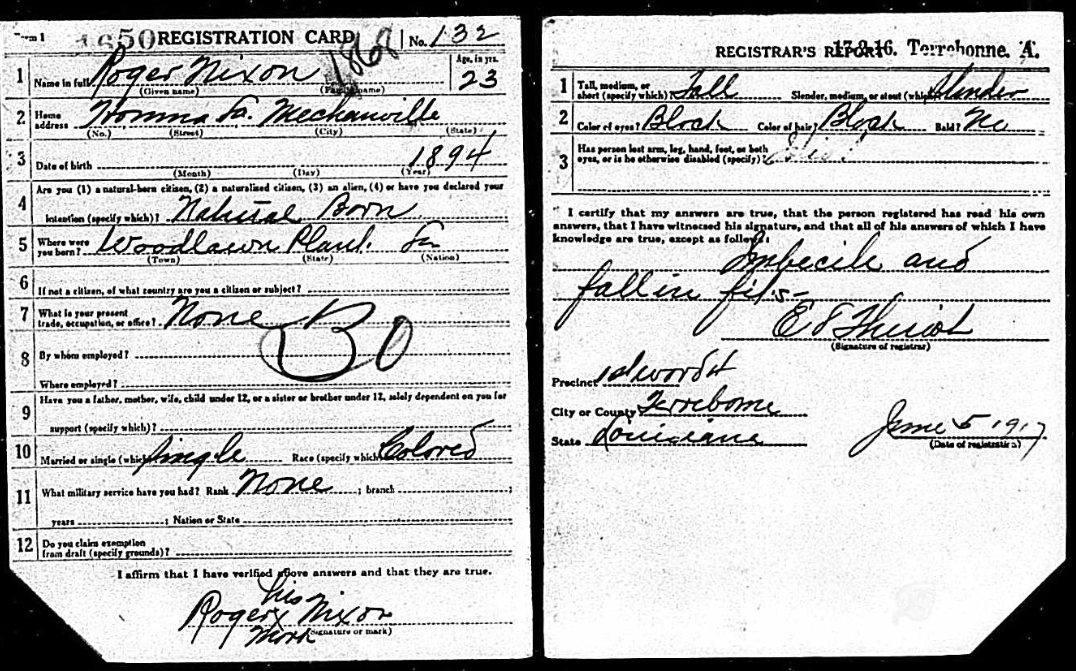 Form 1 1650 REGISTRATION CARD 1868 No. 132
1 Name in full Roger Nixon Age, in yrs. 23
(Given name) (Family name)
2 Home address Homma La. Mechanville
(No.) (Street) (City) (State)
3 Date of birth 1894
(Month) (Day) (Year)
4 Are you (1) a natural-born citizen, (2) a naturalized citizen, (3) an alien, (4) or have you declared your
intention (specify which)? Natural Born
5 Where were you born? Woodlawn Plant. La
(Town) (State) (Nation)
6 If not a citizen, of what country are you a citizen or subject?
7 What is your present trade, occupation, or office? None
8 By whom employed?
Where employed?
9 Have you a father, mother, wife, child under 12, or a sister or brother under 12, solely dependent on you for
support (specify which)?
10 Married or single (which) Single Race (specify which) Colored
11 What military service have you had? Rank None ; branch ;
years ; Nation or State
12 Do you claim exemption from draft (specify grounds)?
I affirm that I have verified above answers and that they are true.
his
Roger x Nixon
mark (Signature or mark)
REGISTRAR'S REPORT 17-2-16. Terrebonne. A.
1 Tall, medium, or short (specify which)? Tall Slender, medium, or stout (which)? Slender
2 Color of eyes? Black Color of hair? Black Bald? No
3 Has person lost arm, leg, hand, foot, or both
eyes, or is he otherwise disabled (specify)?
I certify that my answers are true, that the person registered has read his own
answers, that I have witnessed his signature, and that all of his answers of which I have
knowledge are true, except as follows:
Imbecile and
fall in fits-
E S Theriot
(Signature of registrar)
Precinct 1d word 4
City or County Terrebonne
State Louisiana June 5 1917
(Date of registration)